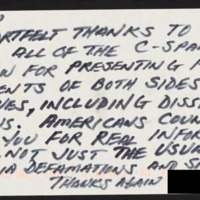 RTFELT THANKS TO
ALL OF THE C-SPA
N FOR PRESENTING
ENTS OF BOTH SIDES
ES, INCLUDING DISS
S. AMERICANS COUN
YOU FOR REAL INFOR
NOT JUST THE USUA
IA DEFAMATIONS AND S
THANKS AGAIN